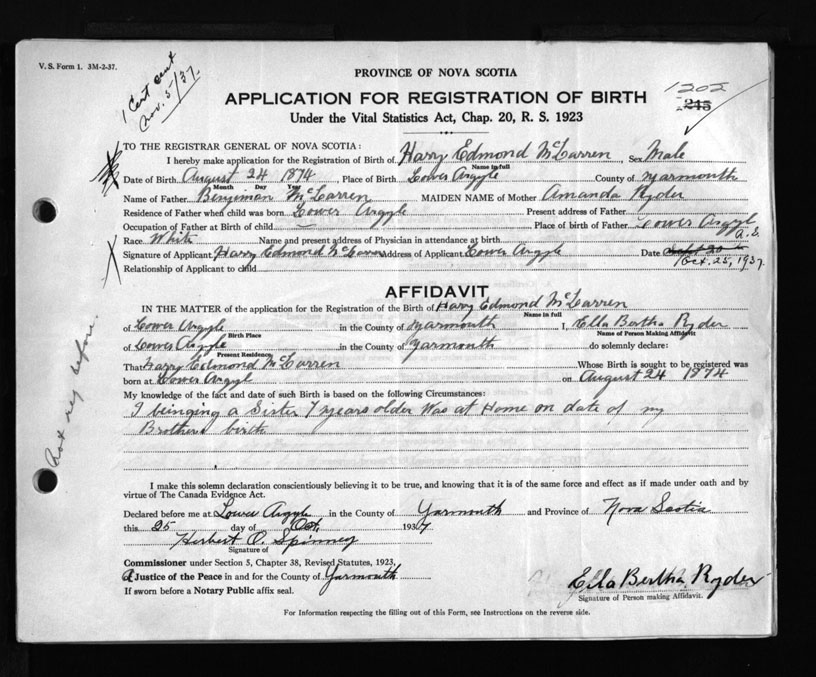 V. S. Form 1. 3M-2-37.
1 Cert sent
Nov. 5/37.
PROVINCE OF NOVA SCOTIA
1202
245
APPLICATION FOR REGISTRATION OF BIRTH
Under the Vital Statistics Act, Chap. 20, R. S. 1923
TO THE REGISTRAR GENERAL OF NOVA SCOTIA:
I hereby make application for the Registration of Birth of Harry Edmond McLarren Sex Male
Name in full
Date of Birth August 24 1874 Place of Birth Lower Argyle County of Yarmouth
Month Day Year
Name of Father Benjiman McLarren MAIDEN NAME of Mother Amanda Ryder
Residence of Father when child was born Lower Argyle Present address of Father
Occupation of Father at Birth of child Place of birth of Father Lower Argyle
Race White Name and present address of Physician in attendance at birth
Signature of Applicant Harry Edmond McLarren Address of Applicant Lower Argyle Date
Oct. 25, 1937.
Relationship of Applicant to child
AFFIDAVIT
IN THE MATTER of the application for the Registration of the Birth of Harry Edmond McLarren
Name in full
of Lower Argyle in the County of Yarmouth I, Ella Bertha Ryder
Birth Place Name of Person Making Affidavit
of Lower Argyle in the County of Yarmouth do solemnly declare:
Present Residence
That Harry Edmond McLarren Whose Birth is sought to be registered was
born at Lower Argyle on August 24 1874
My knowledge of the fact and date of such Birth is based on the following Circumstances:
I beinging a Sister 7 years older Was at Home on date of my
Brothers birth
Not reg before.
I make this solemn declaration conscientiously believing it to be true, and knowing that it is of the same force and effect as if made under oath and by
virtue of The Canada Evidence Act.
Declared before me at Lower Argyle in the County of Yarmouth and Province of Nova Scotia
this 25 day of Oct. 1937
Herbert O. Spinney
Signature of
Commissioner under Section 5, Chapter 38, Revised Statutes, 1923,
A Justice of the Peace in and for the County of Yarmouth
If sworn before a Notary Public affix seal.
Ella Bertha Ryder
Signature of Person making Affidavit.
For Information respecting the filling out of this Form, see Instructions on the reverse side.